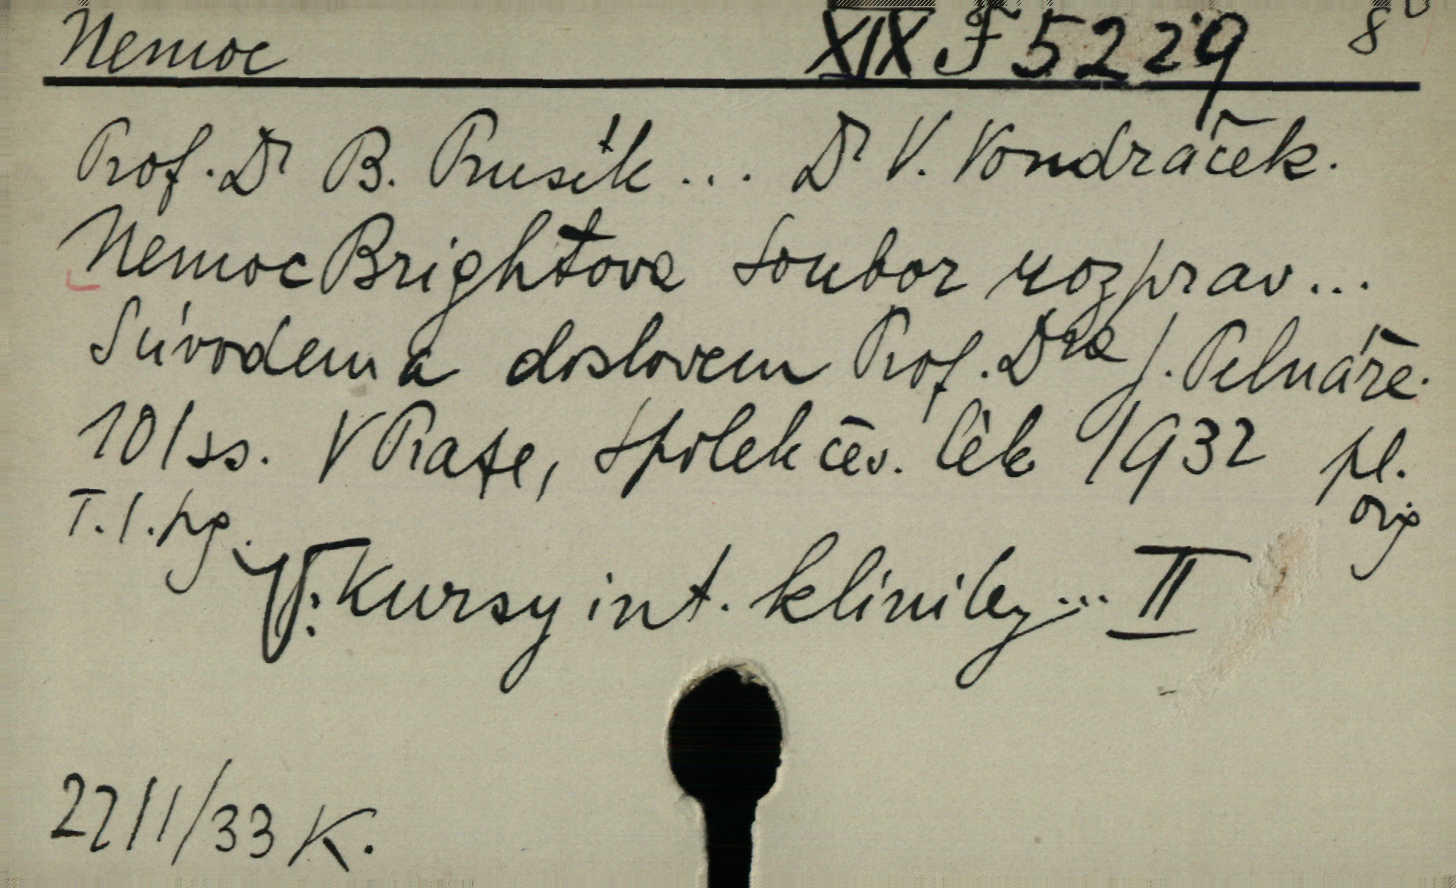 Nemoc XIX F 5229 8°
Prof. Dr B. Prusík ... Dr V. Vondráček.
Nemoc Brightova Soubor rozprav ...
S úvodem a doslovem Prof. Dra J. Pelnáře.
101 ss. V Praze, Spolek čes. lék 1932 pl.
T. I. pg. orig
V: Kursy int. kliniky ... II
22/II/33 K.